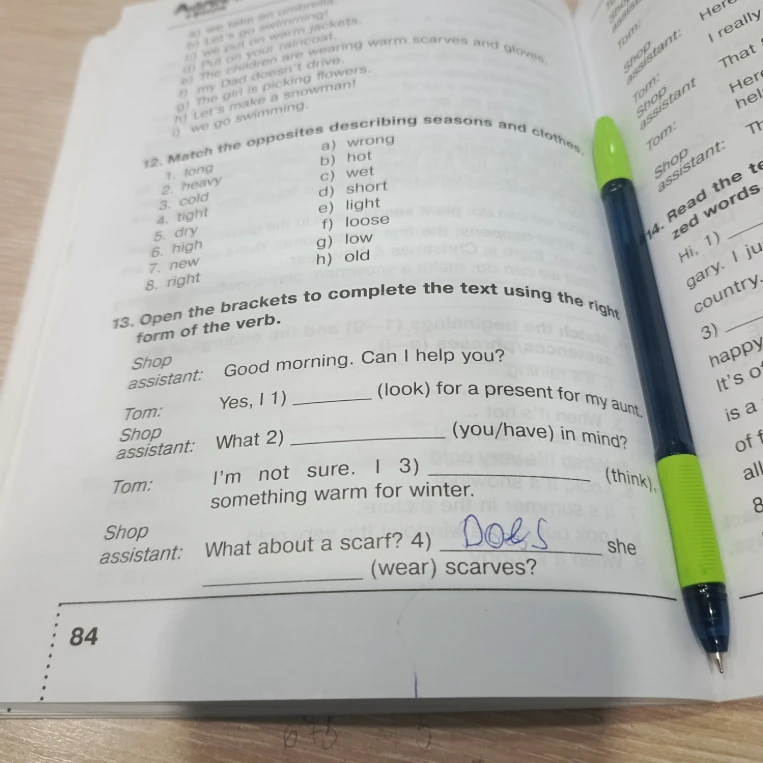 a) we take an umbrella.
b) Let's go swimming!
c) we put on warm jackets.
d) Put on your raincoat.
e) The children are wearing warm scarves and gloves.
f) my Dad doesn't drive.
g) The girl is picking flowers.
h) Let's make a snowman!
i) we go swimming.
12. Match the opposites describing seasons and clothes.
1. long a) wrong
2. heavy b) hot
3. cold c) wet
4. tight d) short
5. dry e) light
6. high f) loose
7. new g) low
8. right h) old
13. Open the brackets to complete the text using the right
form of the verb.
Shop
assistant: Good morning. Can I help you?
Tom: Yes, I 1) ________ (look) for a present for my aunt.
Shop
assistant: What 2) ________________ (you/have) in mind?
Tom: I'm not sure. I 3) ________________ (think),
something warm for winter.
Shop
assistant: What about a scarf? 4) DOES she
________________ (wear) scarves?
84
Tom: Here
Shop
assistant: I really
Tom: That
Shop
assistant Her
Tom: hel
Shop
assistant: Th
14. Read the te
zed words
Hi, 1) ____
gary. I ju
country.
3) ____
happy
It's o
is a
of f
all
8